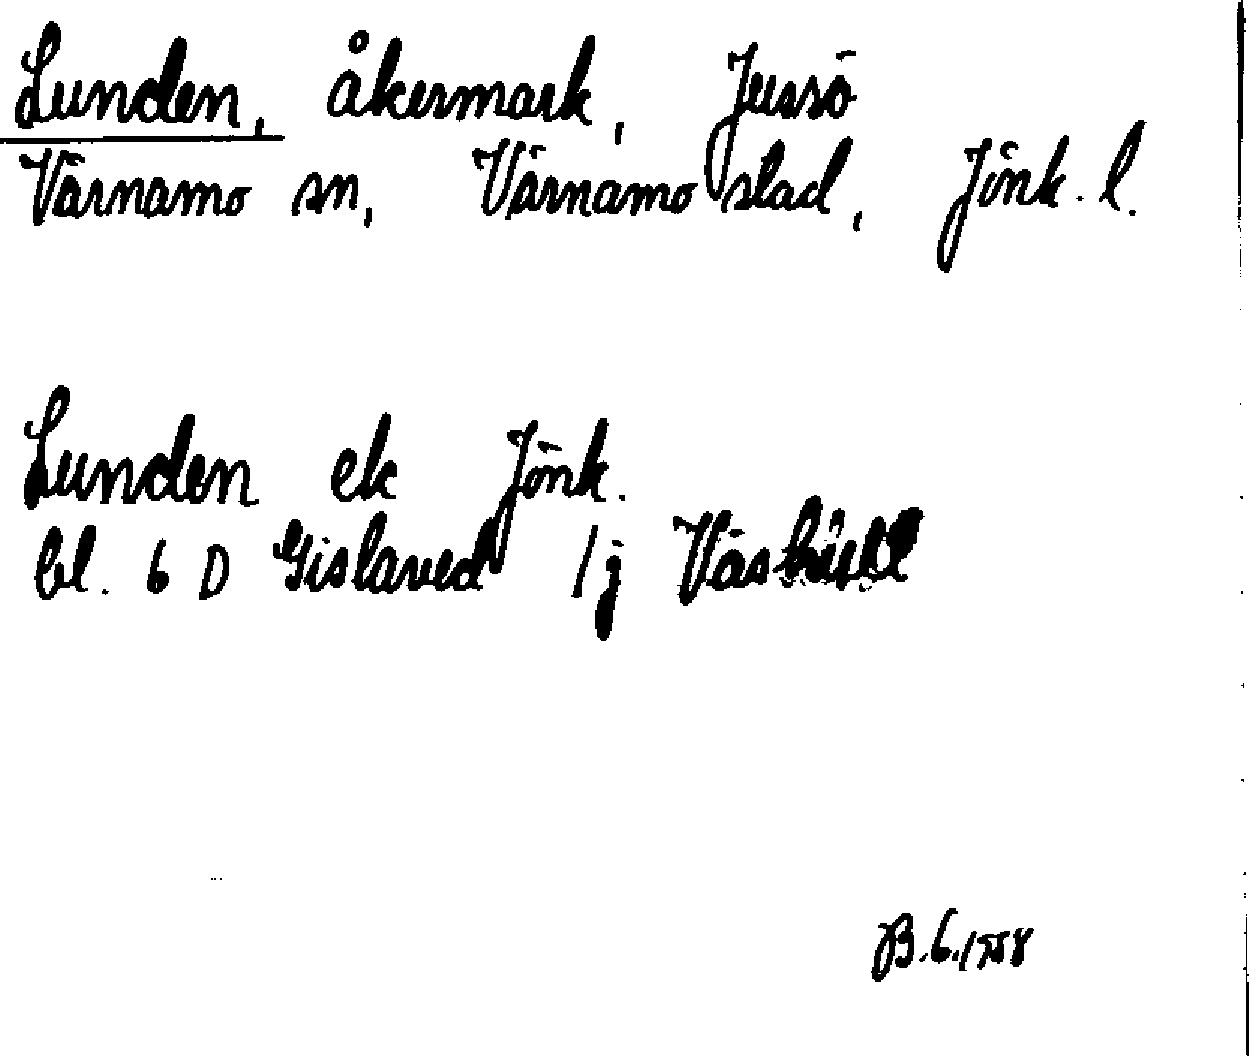 Lunden, åkermark, Jussö
Värnamo sn, Värnamo stad, Jönk. l.
Lunden ek Jönk.
bl. 6 D Gislaved 1j
B.G. 1958